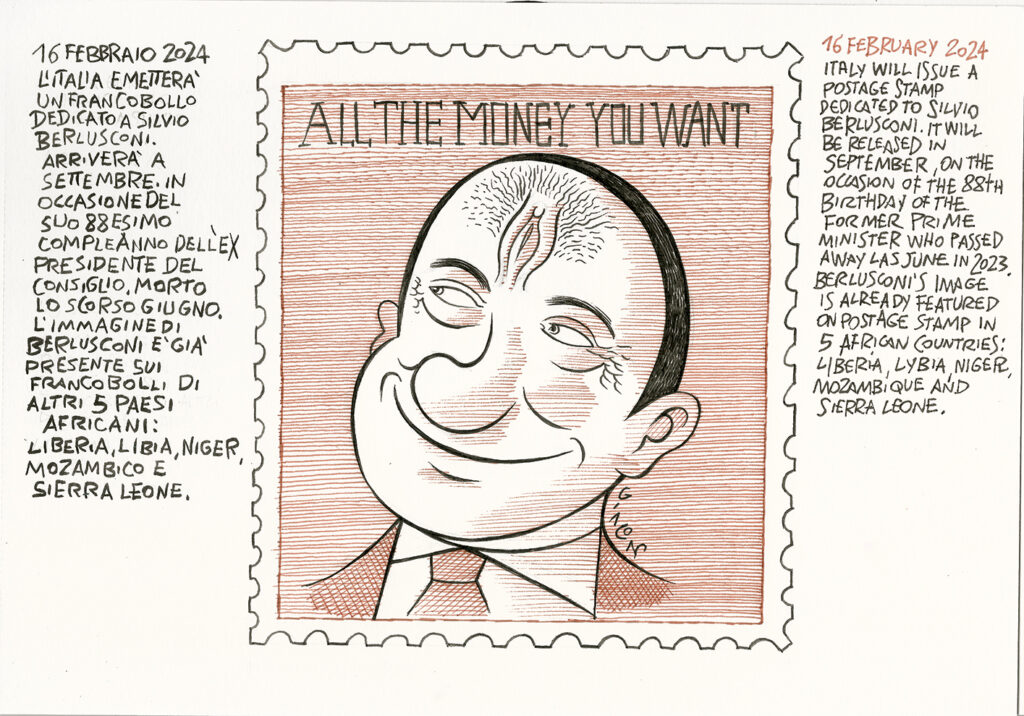 16 FEBBRAIO 2024
L'ITALIA EMETTERA'
UN FRANCOBOLLO
DEDICATO A SILVIO
BERLUSCONI.
ARRIVERA' A
SETTEMBRE. IN
OCCASIONE DEL
SUO 88ESIMO
COMPLEANNO DELL'EX
PRESIDENTE DEL
CONSIGLIO, MORTO
LO SCORSO GIUGNO.
L'IMMAGINE DI
BERLUSCONI E' GIA'
PRESENTE SUI
FRANCOBOLLI DI
ALTRI 5 PAESI
AFRICANI:
LIBERIA, LIBIA, NIGER,
MOZAMBICO E
SIERRA LEONE.
ALL THE MONEY YOU WANT
GINCON
16 FEBRUARY 2024
ITALY WILL ISSUE A
POSTAGE STAMP
DEDICATED TO SILVIO
BERLUSCONI. IT WILL
BE RELEASED IN
SEPTEMBER, ON THE
OCCASION OF THE 88TH
BIRTHDAY OF THE
FORMER PRIME
MINISTER WHO PASSED
AWAY LAS JUNE IN 2023.
BERLUSCONI'S IMAGE
IS ALREADY FEATURED
ON POSTAGE STAMP IN
5 AFRICAN COUNTRIES:
LIBERIA, LYBIA, NIGER,
MOZAMBIQUE AND
SIERRA LEONE.